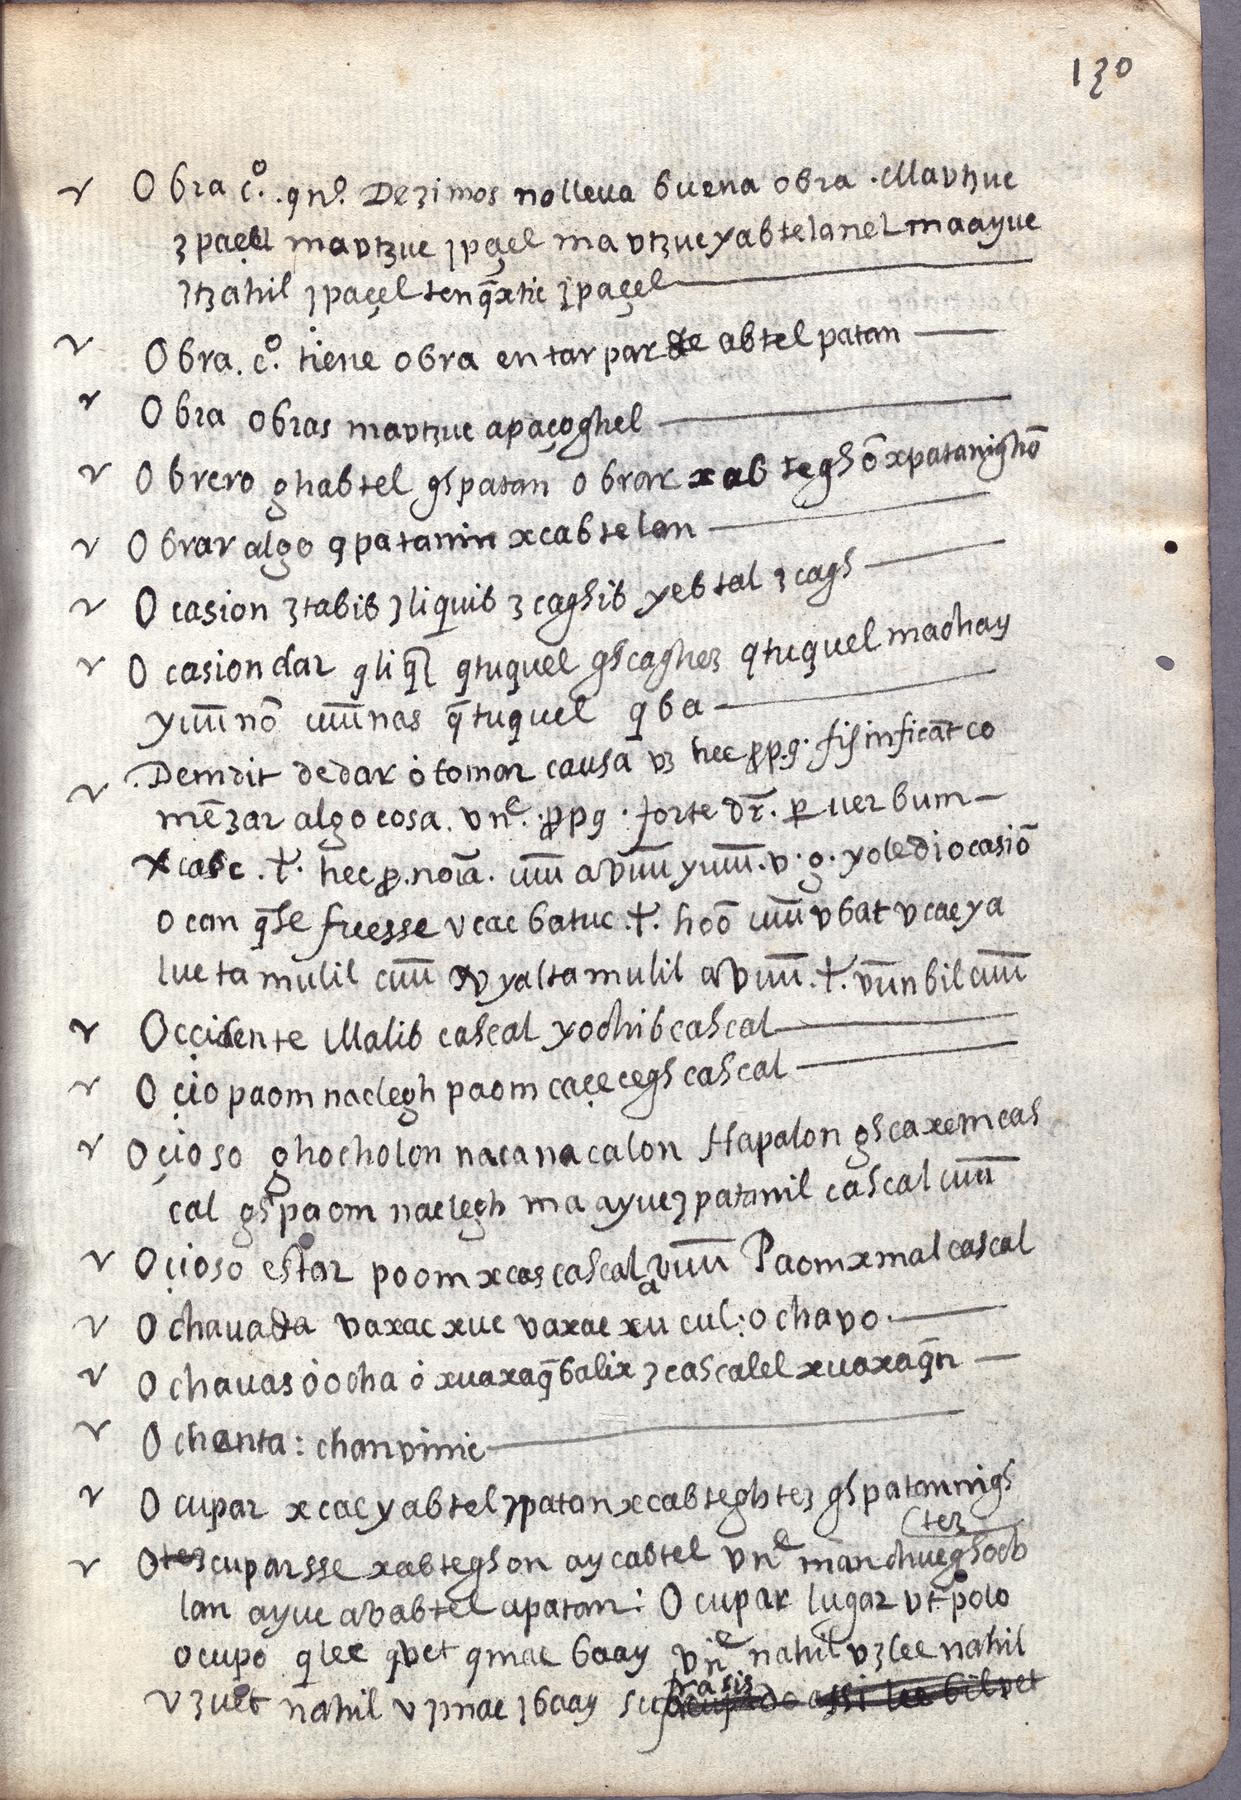 130
Obra c͠o. qn͠. Dezimos no lleua buena obra. Mavtzuc
ʒpaçel mavtzuc ʒpaçel mavtzuc yabtelanel maayuc
ʒtzahil ʒpaçel ten q̄xtic ʒpaçel
Obra. co. tiene obra entar par de abtel patan
Obra obras mavtzuc apaçoghel
Obrero ghabtel ghpatan obrar xabtegh ō xpatanighō
Obrar algo qpatanin xcabtelan
Ocasion ʒtabib ʒliquib ʒcaghib yebtal ʒcagh
Ocasion dar qliq̄l qtuquel ghcaghez qtuquel machay
yūūnō cūūnas q̄tuquel qba
Demdit de dar ó tomar causa vʒ hec p̱p.q. sisinficāt co
mēʒar algo cosa. vne. p̱pq. forte dr̄. p̱ uerbum
xcasc. t̄. hec p̱.noīa. cūū avūū yūūū. v.g. yo le di ocasiō
o con q̄ se fuesse vcac batuc .t̄. hoō cūū vbat vcac ya
luc ta mulil cūū vyalta mulil avūū .t̄. vūnbil cūū
Occidente Malib cascal yochib cascal
Oçio paom naclegh paom caçecegh cascal
Oçioso ghocholon nacanacalon Hapalon ghcaxemcas
cal ghpaom naclegh ma ayuc ʒpatanil cascal cūū
Oçioso estar poom xcas cascal avūū Paom xmal cascal
Ochauada vaxac xuc vaxac xucul: ochavo.
Ochauas ó ocha ó xuaxaq̄balix ʒcascalel xuaxaq̄n
Ochanta: chanvinic
Ocupar xcac yabtel ʒpatan xcabteghtez ghpatannigh
(tez
Ocuparsse xabteghon aycabtel vne manchueghoch
lan ayuc avabtel apatan: Ocupar lugar vt polo
ocupo qlec qvet qmac baay vne nahil vʒlec nahil
vʒuet nahil vʒmac ʒbaay su frasis